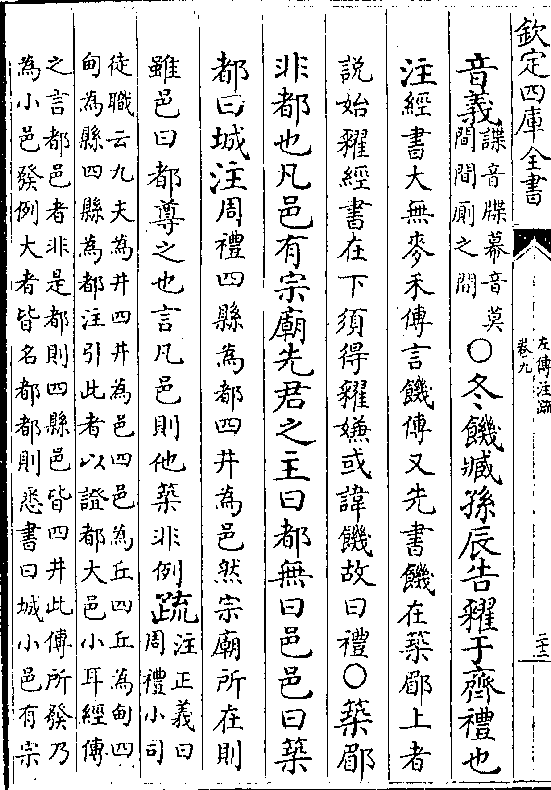 欽定四庫全書
左傳注疏
卷九
音義諜音牒幕音莫
間間厠之間
○冬饑臧孫辰告糴于齊禮也
注經書大無麥禾傳言饑傳又先書饑在築郿上者
說始糴經書在下須得糴嫌或諱饑故曰禮○築郿
非都也凡邑有宗廟先君之主曰都無曰邑邑曰築
都曰城注周禮四縣為都四井為邑然宗廟所在則
雖邑曰都尊之也言凡邑則他築非例疏注正義曰
周禮小司
徒職云九夫為井四井為邑四邑為丘四丘為甸四
甸為縣四縣為都注引此者以證都大邑小耳經傳
之言都邑者非是都則四縣邑皆四井此傳所發乃
為小邑發例大者皆名都都則悉書曰城小邑有宗